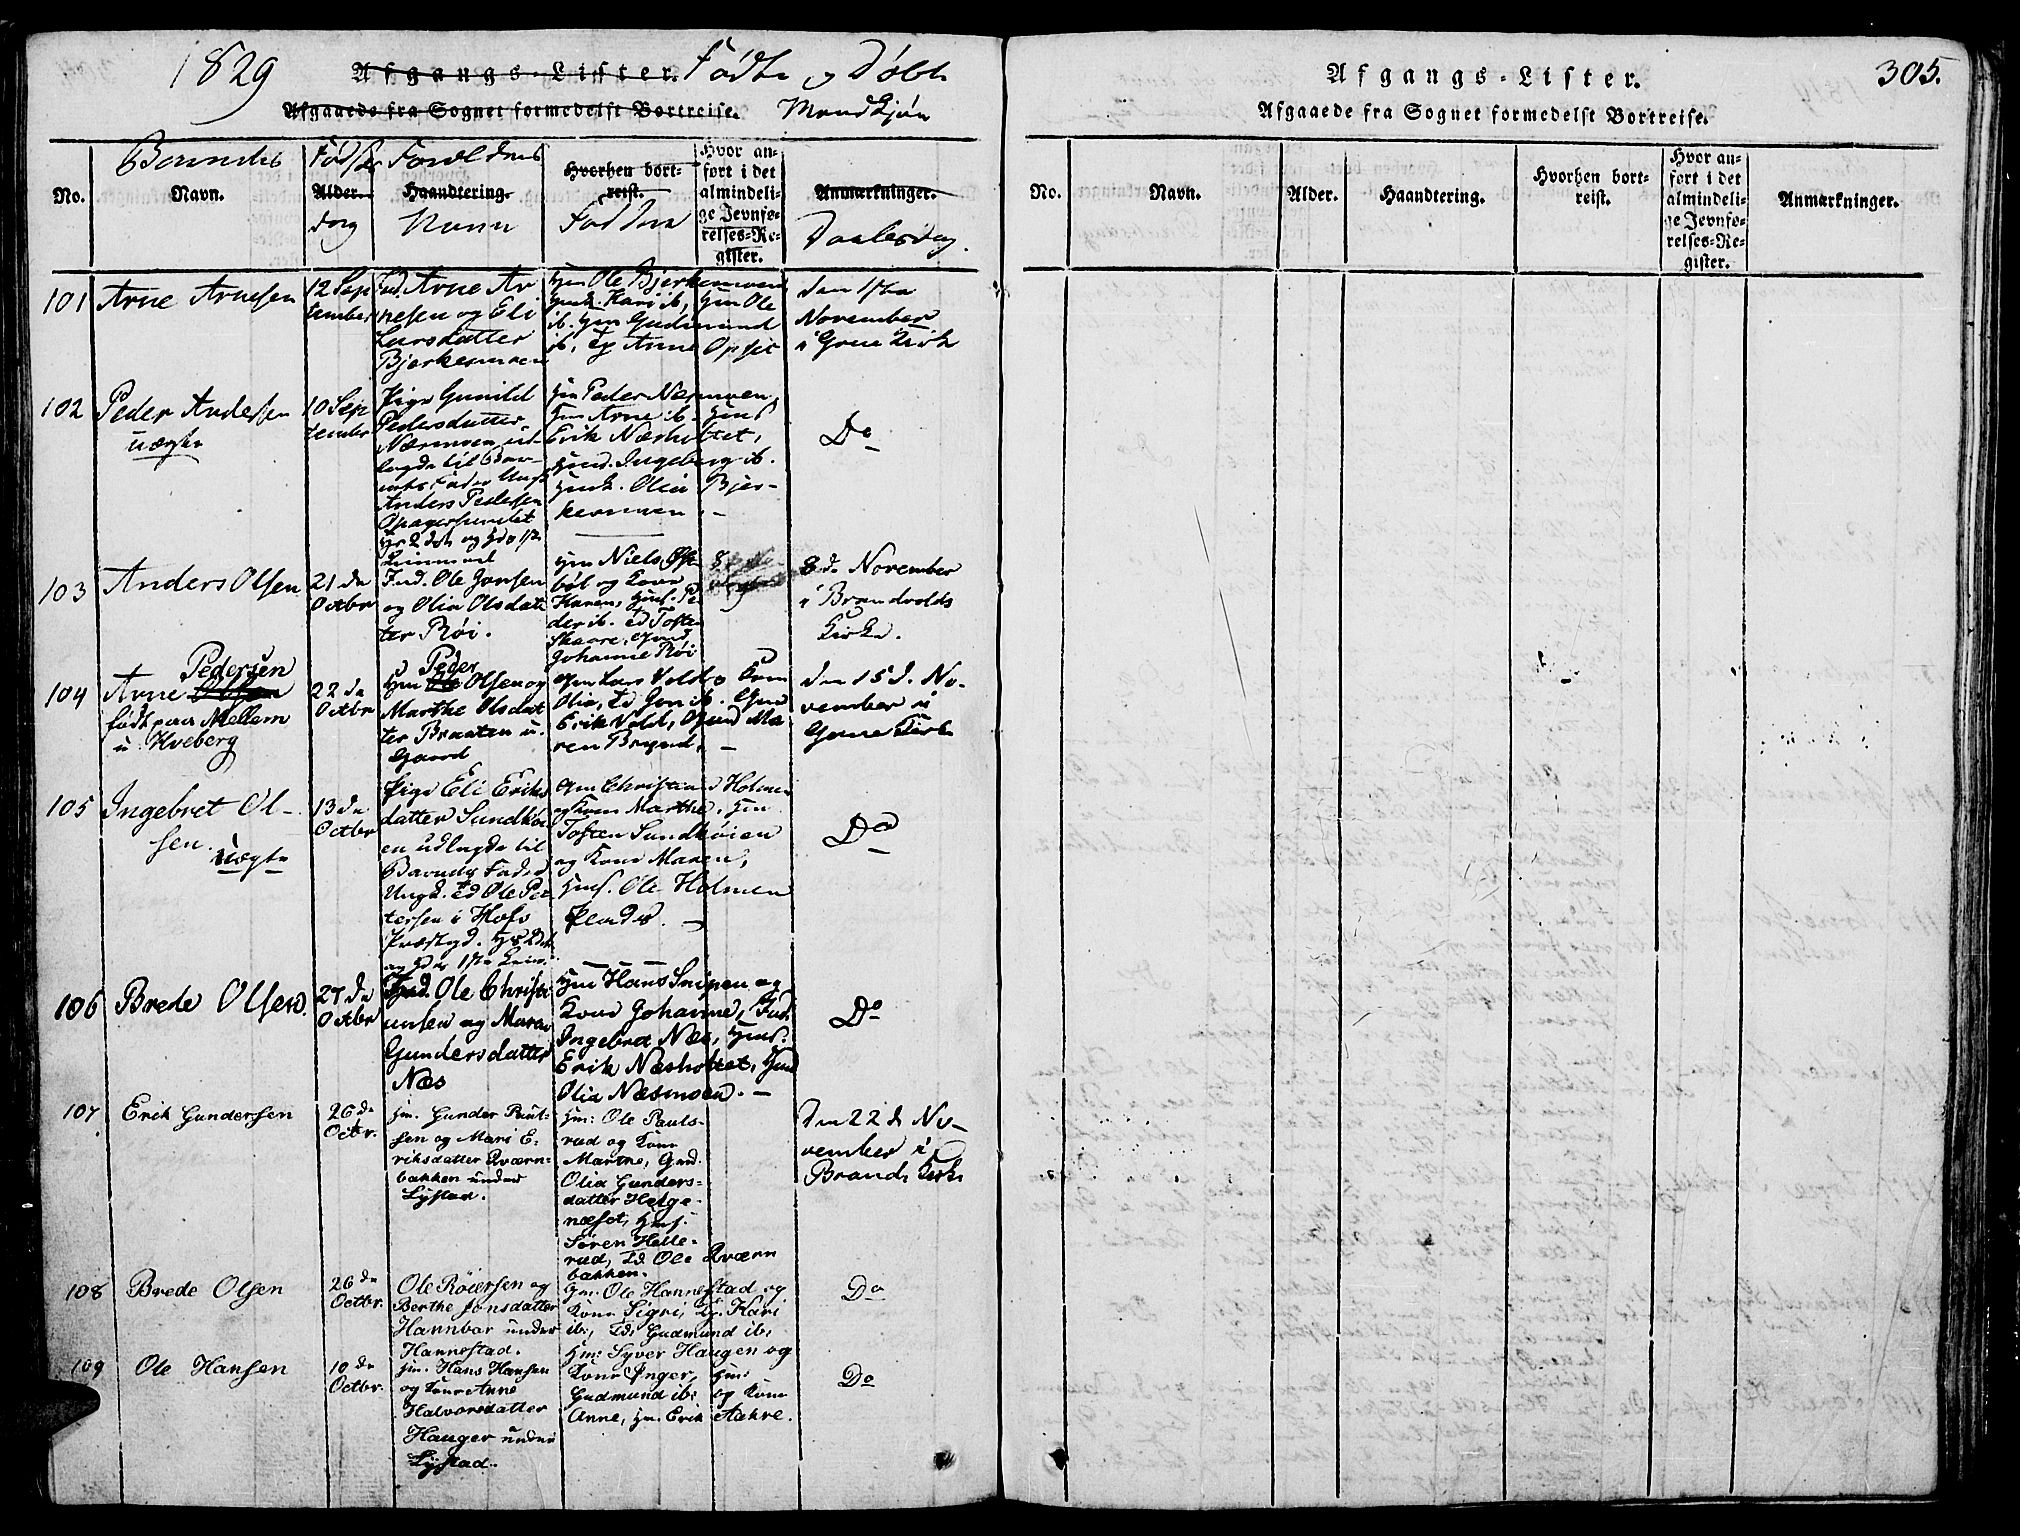 1829 Afgangs-Lister. Fødte og Døbte
Afgaaede fra Sognet formedelst Bortreise. Mandkjøn
No.
Barnets
Navn.
Føds.
Alder.
Dag
Forældrenes
Haandtering.
Navn
Hvorhen bort-
reist.
Faddere
Hvor an-
ført i det
almindeli-
ge Jevnfø-
relses-Re-
gister.
Anmærkninger.
Daabsdag.
101
Arne Arnesen
12 Sep
tember
Ind. Arne Ar
nesen og Eli
Larsdatter
Bjerkemoen
Hm Ole Bjerkemoen
Hmk. Kari ib, Hm Ole
ib. Hm Gudmund
ib, Ep Arne Opset
den 1ste
November
i Grue Kirke
102
Peder Andersen
uægte
10 Sep
tember
Pige Gunild
Pedersdatter
Næsmoen ud-
lagde til Bar-
nets Fader Ungk
Anders Pedersen
Opagersundet
Hm Peder Næsmoen,
Hm Arne ib. Hms
Erik Næsholtet,
Hmd. Ingeborg ib.
Hmk. Olia Bjer-
kemoen
Do
103
Anders Olsen
21 de
Octbr
Ind. Ole Jonsen
og Olia Olsdat
ter Røi.
Hm Niels
bøl og Kone
Karen, Hms. Pe
der ib. Ed Tosten
Skaare, Gmd
Johanne Røi
8 d. November
i Brandvolds
Kirke.
104
Pedersen
Arne Olsen
født paa Mellem
u. Hveberg
22 de
Octbr
Peder
Hm Ole Olsen og
Marthe Olsdat
ter Braaten u.
Gaard
Gm Lars Vold og Kone
Olia, Ed Jon ib. Gm
Erik Vold, Gmd Ma
ren Brynd,
den 15 d. No-
vember i
Grue Kirke
105
Ingebret Ol-
sen.
Uægte
13 de
Octbr
Pige Eli Eriks
datter Sundkøi
en udlagde til
Barnets Fader
Ungk. Ed Ole Pe
tersen i Hofs
Præstegd. Hs 2det
og Hdes 1ste Leierm.
Gm Christian Holmen
og Kone Marthe, Hm
Tosten Sundkøien
og Kone Maren,
Hms. Ole Holmen
Plads.
Do
106
Brede Olsen
27 de
Octbr
Ind. Ole Christi
ansen og Maren
Gundersdatter
Næs
Hm Hans Snipen og
Kone Johanne, Ind.
Ingebret Næs, Hms.
Erik Næsholtet, Gmd
Olia Næsmoen.
Do
107
Erik Gundersen
26 de
Octbr.
Hm. Gunder Paul-
sen og Mari E-
riksdatter Qværn-
bakken under
Lystad.
Hm: Ole Pauls-
rud og Kone
Marthe, Gmd.
Olia Gunders-
datter Helge-
næset, Hms.
Søren Helle-
rud, Ed. Ole Qværn
bakken.
Den 22 d No-
vember i
Brandv Kirke
108
Brede Olsen
26 de
Octbr.
Ole Røiersen og
Berthe Jonsdatter
Hannbor under
Hannestad.
Gm. Ole Hannestad og
Kone Sigri, Ep. Kari
ib:, Ed. Gudmund ib:
Do
109
Ole Hansen
10 de
Octbr.
Hm. Hans Hansen
og Kone Anne
Halvorsdatter
Haugen under
Lystad.
Hm: Syver Haugen og
Kone Inger, Hm:
Gudmund ib: og Kone
Anne, Hm. Erik Aahre.
Do
305.
Afgangs-Lister.
Afgaaede fra Sognet formedelst Bortreise.
No.
Navn.
Alder.
Haandtering.
Hvorhen bort-
reist.
Hvor an-
ført i det
almindeli-
ge Jevnfø-
relses-Re-
gister.
Anmærkninger.